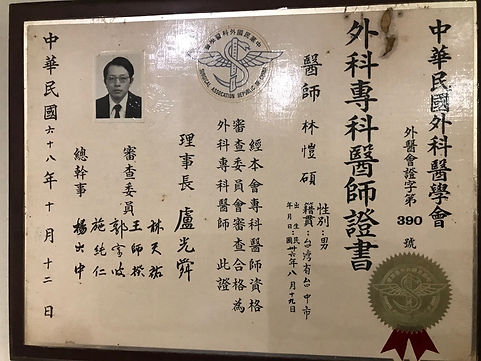 中華民國外科醫學會
外醫會證字第 390 號
外科專科醫師證書
醫師 林愷碩
性別：男
籍貫：台灣省台中市
出生年月日：民國卅六年八月十九日
經本會專科醫師資格
審查委員會審查合格為
外科專科醫師 此證
理事長 盧光舜
審查委員
林天祐
王師揆
郭宗波
施純仁
總幹事 楊出中
中華民國六十八年十月十二日
中華民國外科醫學會
SURGICAL ASSOCIATION REPUBLIC OF CHINA